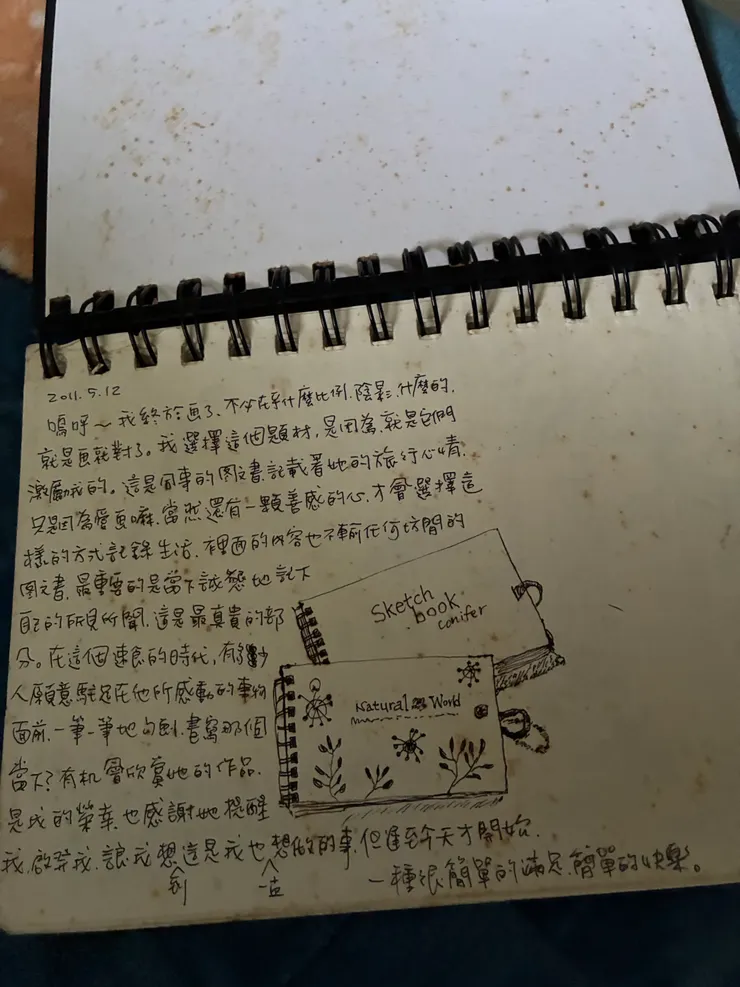 2011.5.12
嗚呼～我終於画了、不必在乎什麼比例、陰影、什麼的、
就是画就對了。我選擇這個題材，是因為、就是它們
激勵我的。這是同事的图文書、記載著她的旅行心情、
只是因為愛画嘛、當然還有一顆善感的心、才會選擇這
樣的方式記錄生活、裡面的內容也不輸任何坊間的
图文書、最重要的是當下誠懇地記下
自己的所見所聞、這是最真貴的部
分。在這個速食的時代，有多少
人願意駐足在他所感動的事物
面前、一筆一筆地勾劃、書寫那個
當下？有机會欣賞她的作品、
是我的榮幸、也感謝她提醒
我、啟發我、讓我想到這是我也一直想做的事、但遲至今天才開始、
一種很簡單的滿足、簡單的快樂。
Sketch
book
conifer
Natural World